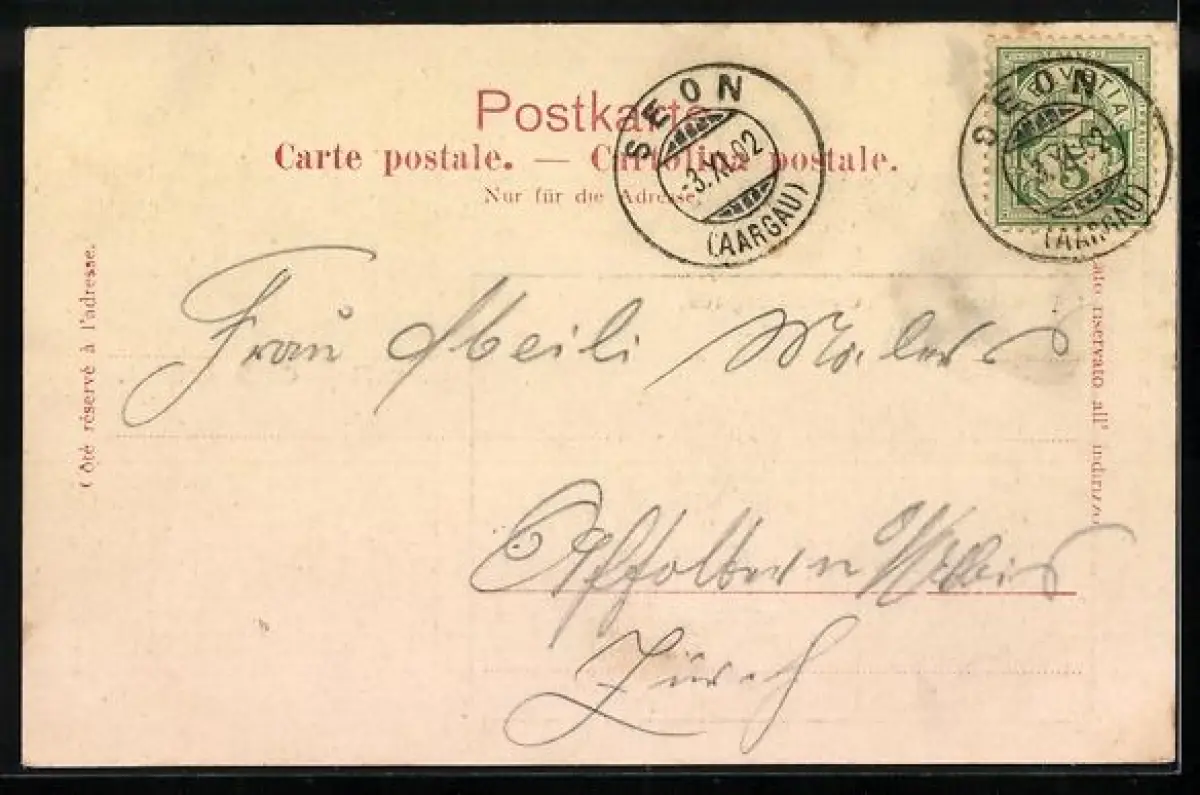 Postkarte
Carte postale. — Cartolina postale.
Nur für die Adresse.
SEON
-3.XI.02
(AARGAU)
HELVETIA
5
SEON
-3.XI.02
(AARGAU)
Côté réservé à l'adresse.
Lato riservato all' indirizzo
Frau
Affoltern
Zürich